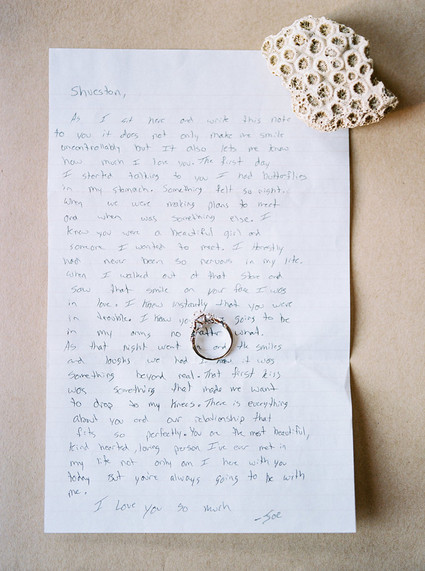 Shueston,
As I sit here and write this note
to you it does not only make me smile
uncontrollably but It also lets me know
how much I love you. The first day
I started talking to you I had butterflies
in my stomach. Something felt so right.
when we were making plans to meet
and when was something else. I
knew you were a beautiful girl and
someone I wanted to meet. I Honestly
had never been so nervous in my life.
When I walked out of that store and
saw that smile on your face I was
in love. I knew instantly that you were
in trouble. I knew going to be
in my arms no matter what.
As that night went and the smiles
and laughs we had I it was
something beyond real. That first kiss
was something that made me want
to drop to my knees. There is everything
about you and our relationship that
fits so perfectly. You are the most beautiful,
kind hearted, loving person I've ever met in
my life not only am I here with you
today But you're always going to be with
me.
I Love You so much
-Joe